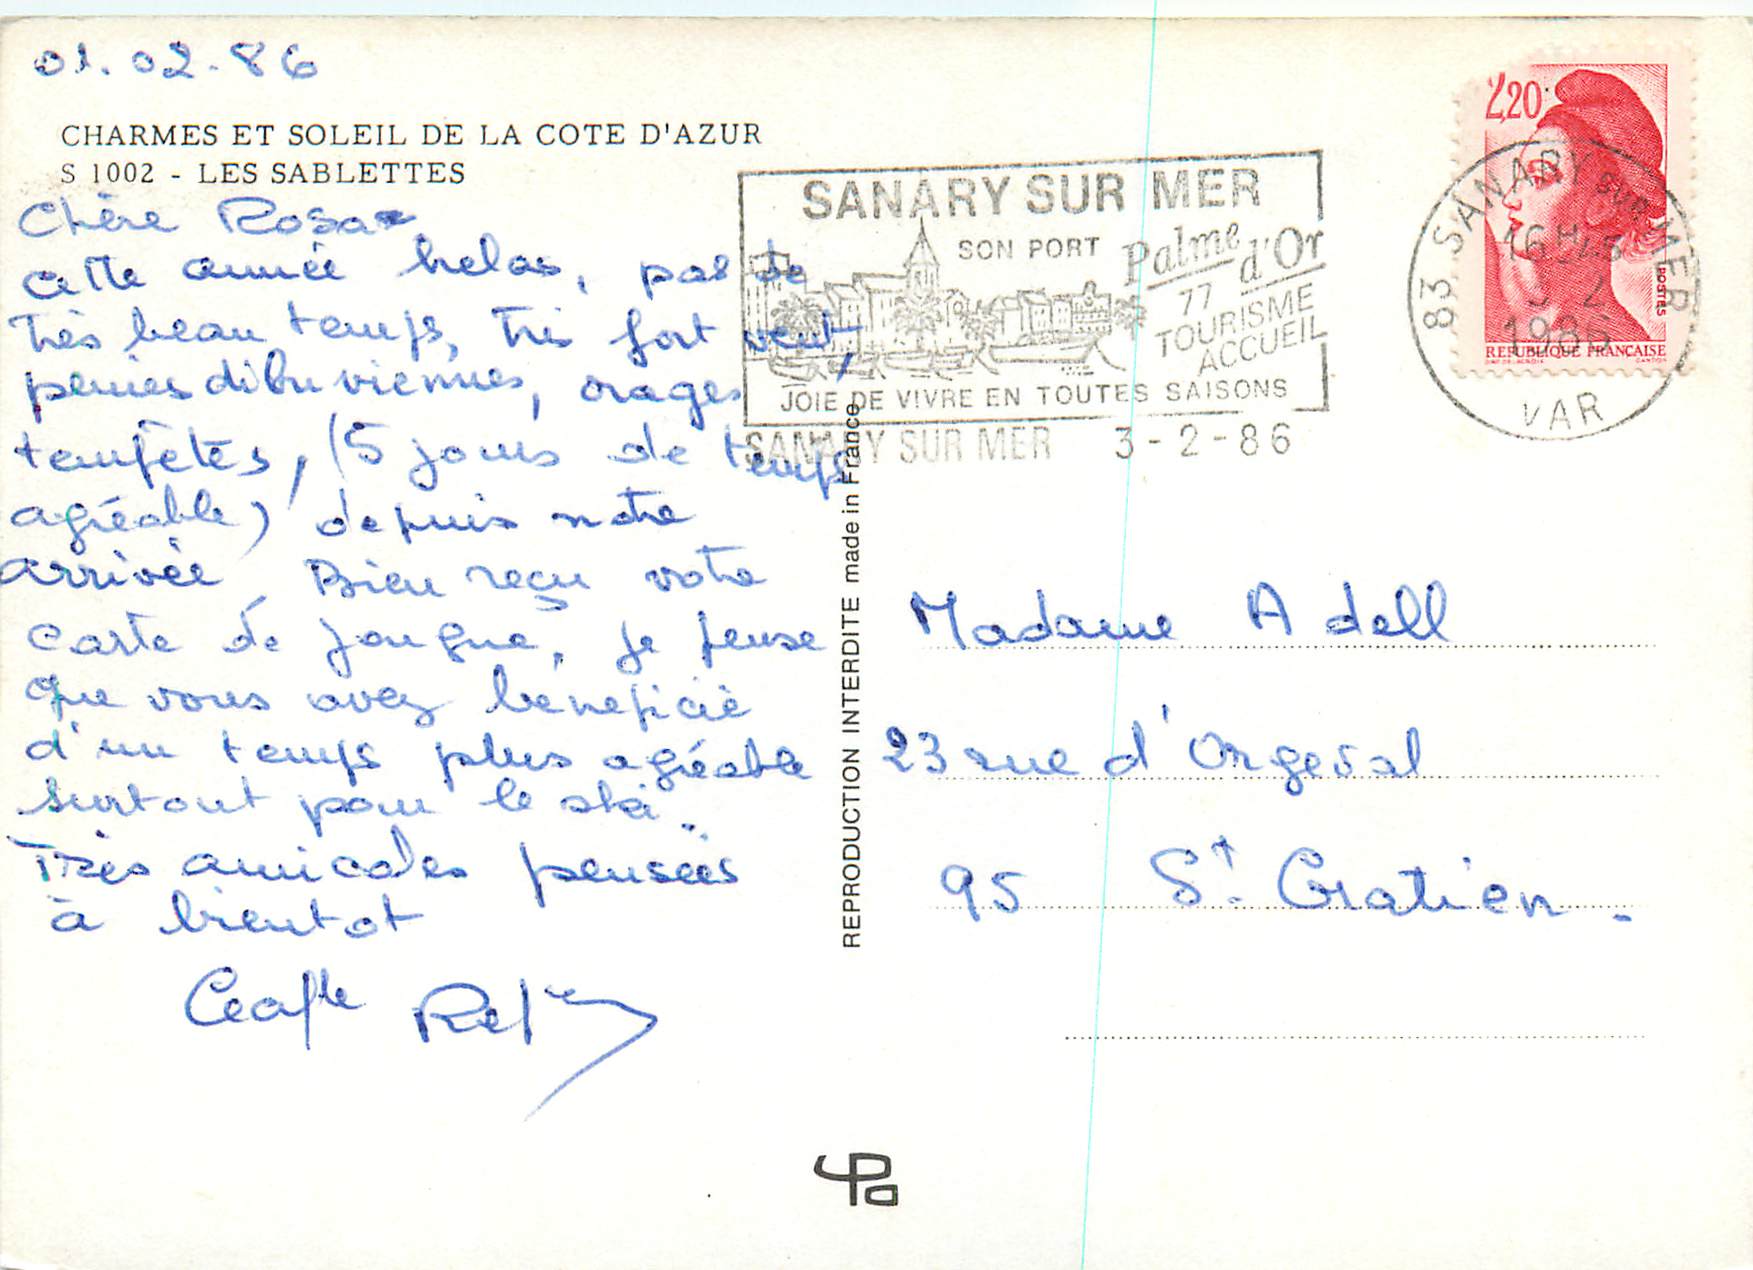 01.02.86
CHARMES ET SOLEIL DE LA COTE D'AZUR
S 1002 - LES SABLETTES
Chère Rosa
cette année helas, pas de
très beau temps, très fort vent,
pluies diluviennes, orages
tempêtes, (5 jours de temps
agréable) depuis notre
arrivée. Bien reçu votre
carte de Jougne, je pense
que vous avez bénéficié
d'un temps plus agréable
surtout pour le ski..
Très amicales pensées
à bientot
SANARY SUR MER
SON PORT
Palme d'Or
77
TOURISME
ACCUEIL
JOIE DE VIVRE EN TOUTES SAISONS
SANARY SUR MER 3-2-86
2,20
POSTES
REPUBLIQUE FRANÇAISE
83 SANARY SUR MER
16H45
3 2
1986
VAR
REPRODUCTION INTERDITE made in France
Madame Adell
23 rue d'Orgeval
95 St. Gratien.